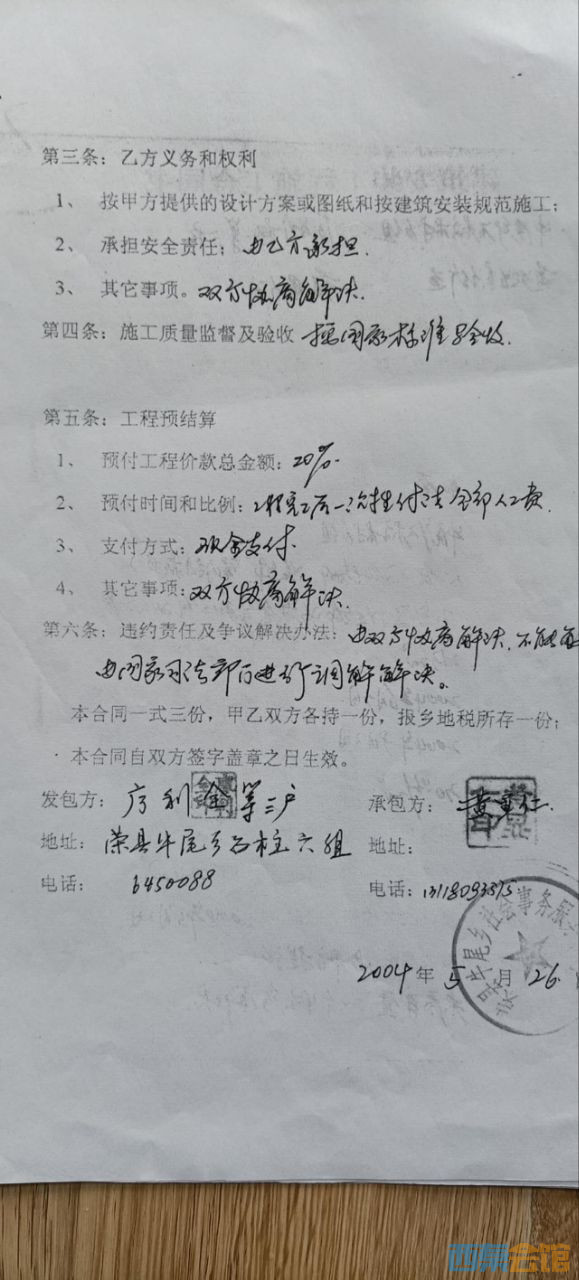 第三条：乙方义务和权利
1、 按甲方提供的设计方案或图纸和按建筑安装规范施工；
2、 承担安全责任；由乙方承担.
3、 其它事项。双方协商解决.
第四条：施工质量监督及验收 按国家标准验收.
第五条：工程预结算
1、 预付工程价款总金额：20%.
2、 预付时间和比例：工程完工后一次性付清全部人工费.
3、 支付方式：现金支付.
4、 其它事项：双方协商解决.
第六条：违约责任及争议解决办法：由双方协商解决.不能
由国家司法部门进行调解解决。
本合同一式三份，甲乙双方各持一份，报乡地税所存一份；
本合同自双方签字盖章之日生效。
发包方： 利金等三户 承包方：
地址： 荣县牛尾乡石柱六组 地址：
电话： 6450088 电话：
牛尾乡社会事务服
2004年5月26
西荣会馆